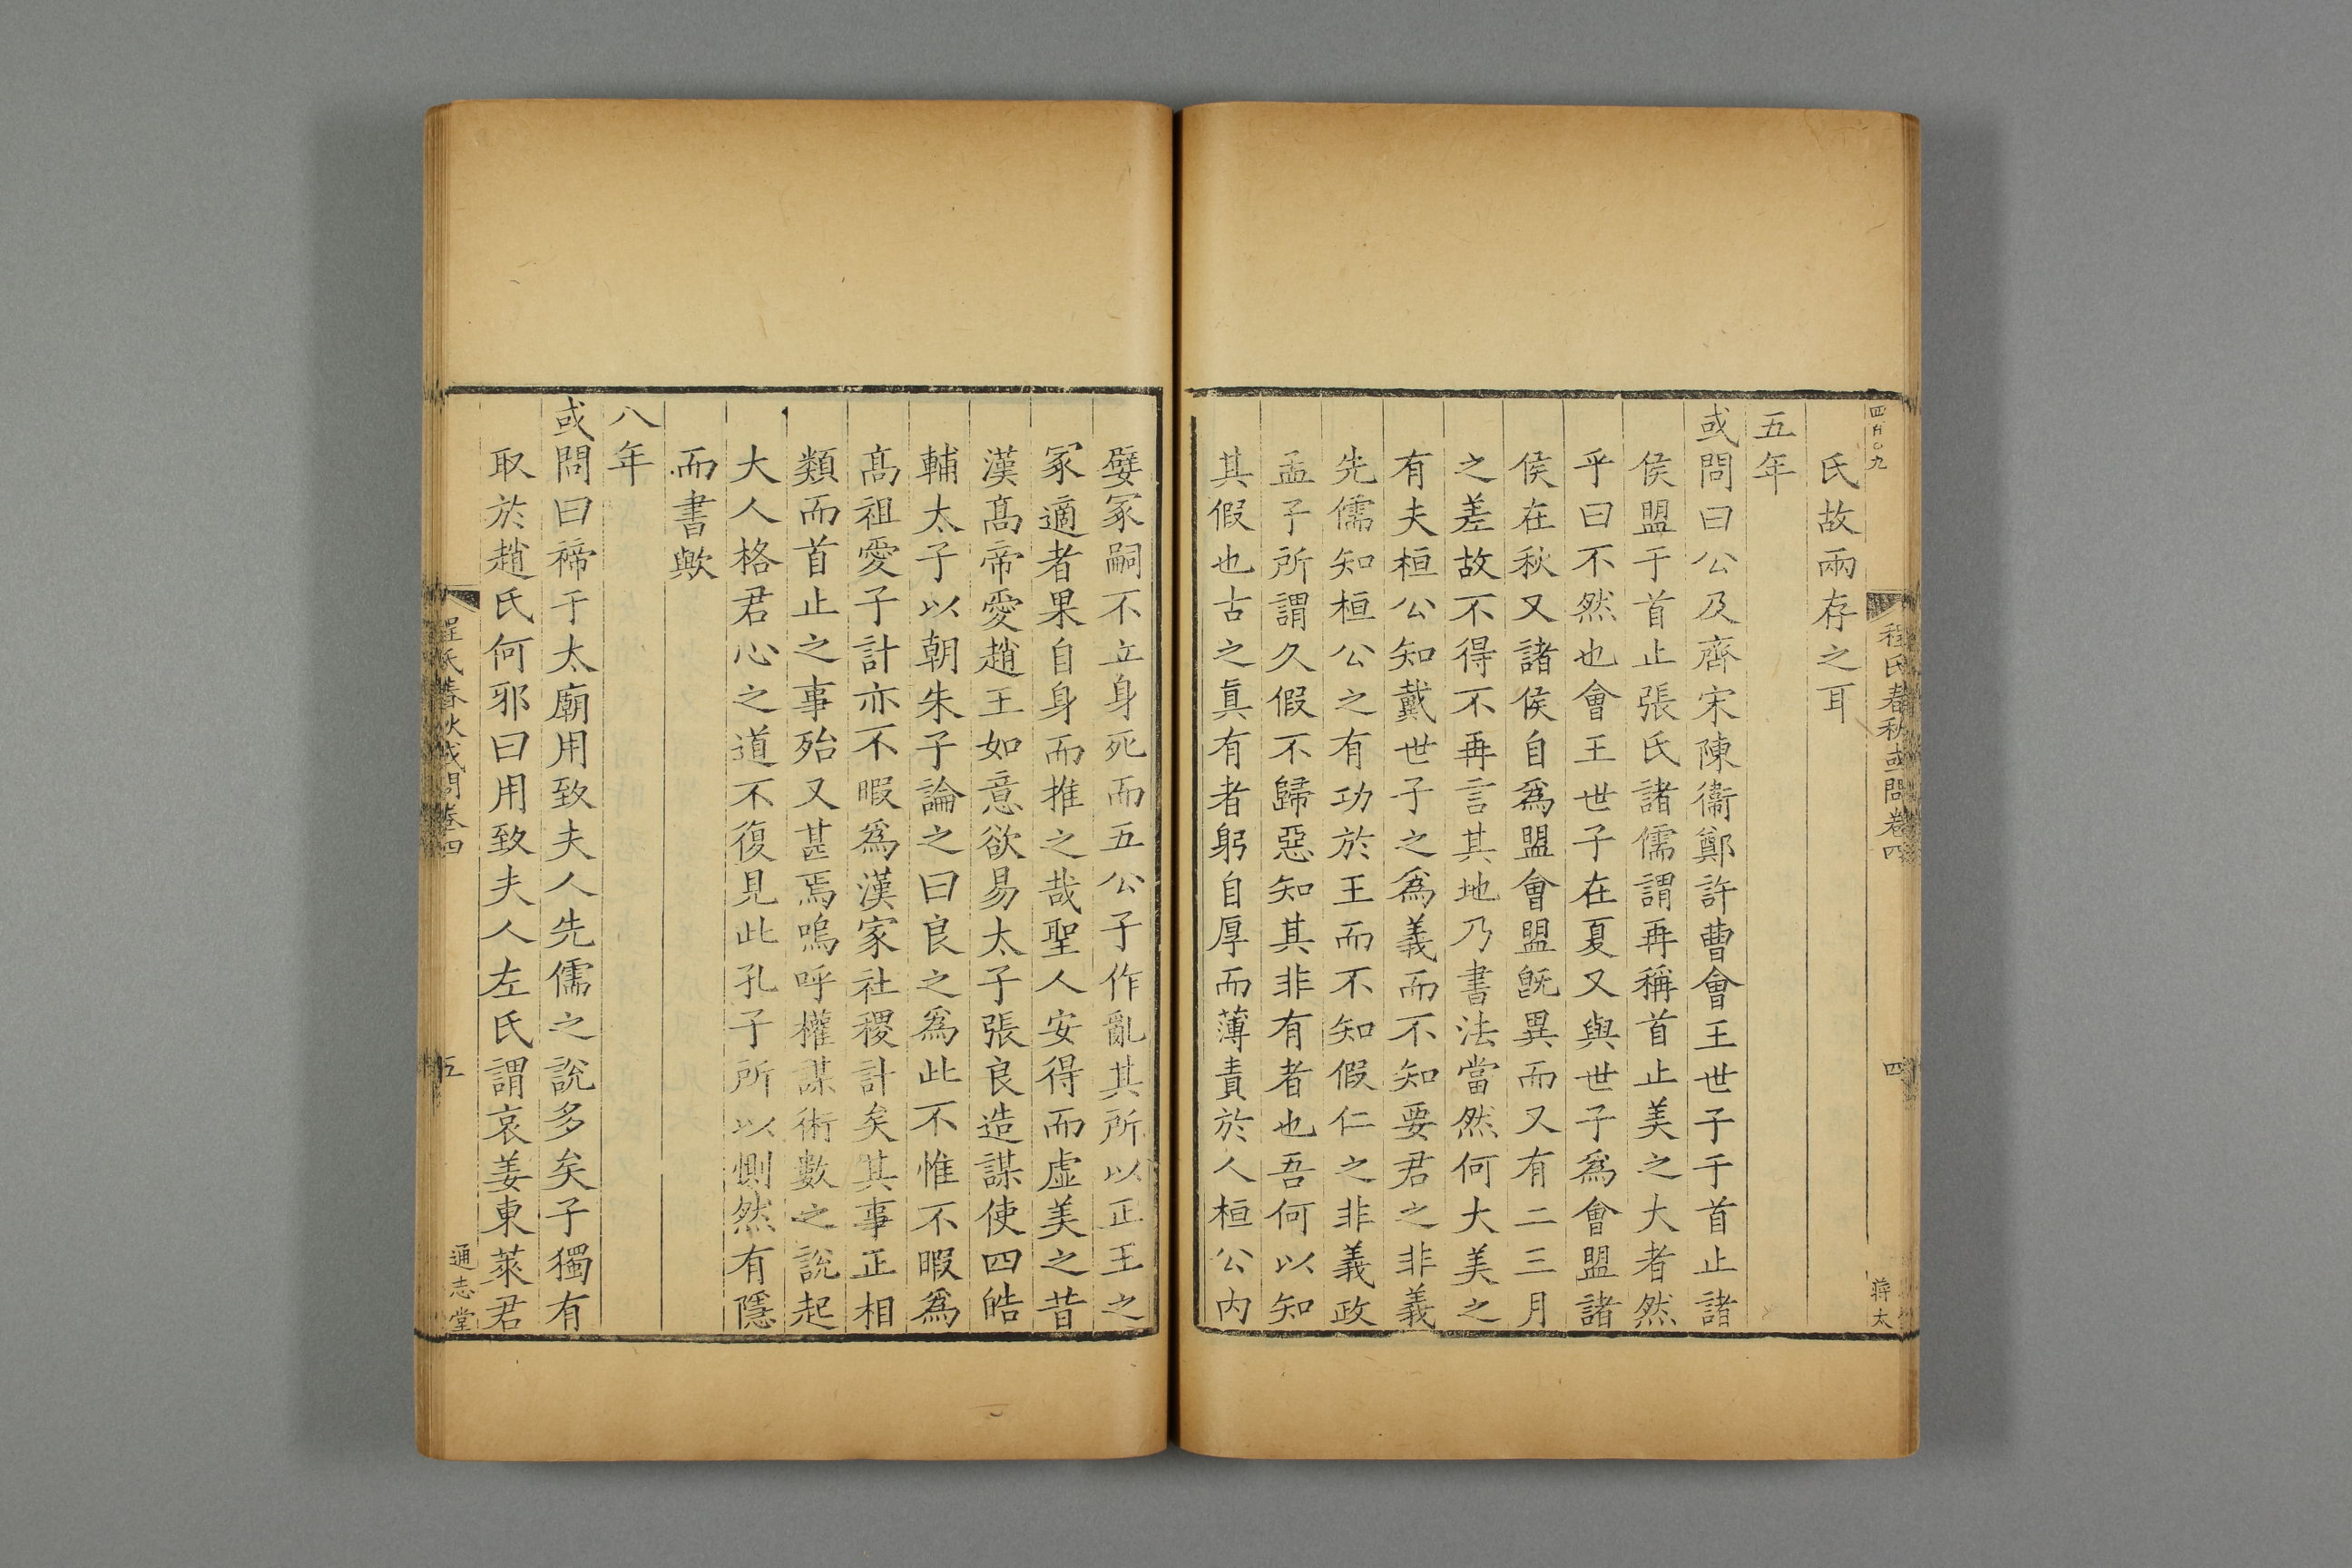 程氏春秋或問卷四
四
蔣太
氏故兩存之耳
五年
或問曰公及齊宋陳衞鄭許曹會王世子于首止諸
侯盟于首止張氏諸儒謂再稱首止美之大者然
乎曰不然也會王世子在夏又與世子爲會盟諸
侯在秋又諸侯自爲盟會盟旣異而又有二三月
之差故不得不再言其地乃書法當然何大美之
有夫桓公知戴世子之爲義而不知要君之非義
先儒知桓公之有功於王而不知假仁之非義政
孟子所謂久假不歸惡知其非有者也吾何以知
其假也古之眞有者躬自厚而薄責於人桓公内
嬖冢嗣不立身死而五公子作亂其所以正王之
冢適者果自身而推之哉聖人安得而虛美之昔
漢髙帝愛趙王如意欲易太子張良造謀使四皓
輔太子以朝朱子論之曰良之爲此不惟不暇爲
髙祖愛子計亦不暇爲漢家社稷計矣其事正相
類而首止之事殆又甚焉嗚呼權謀術數之說起
大人格君心之道不復見此孔子所以惻然有隱
而書歟
八年
或問曰禘于太廟用致夫人先儒之說多矣子獨有
取於趙氏何邪曰用致夫人左氏謂哀姜東萊君
程氏春秋或問卷四
五
通志堂